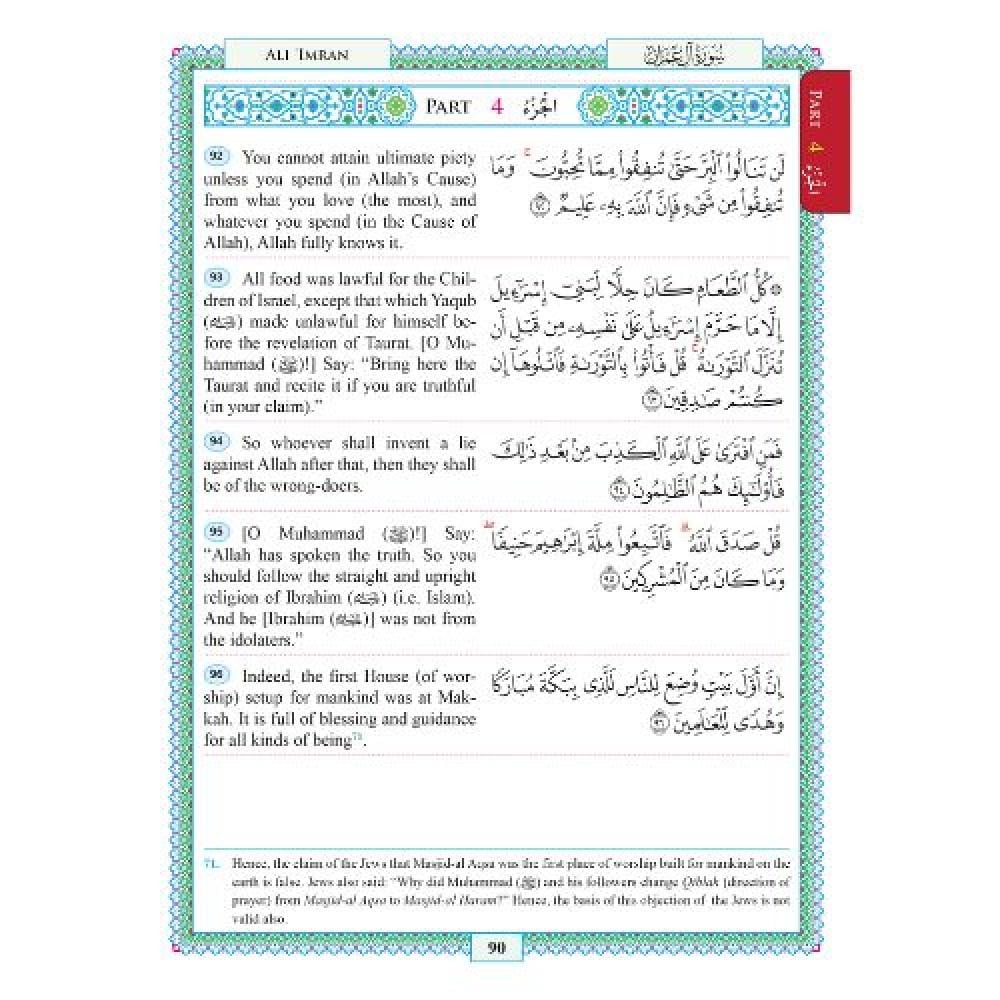 ALI 'IMRAN
سُورَةُ آلِ عِمْرَان
PART 4 الجُزْءُ
PART 4 الجُزْءُ
92 You cannot attain ultimate piety
unless you spend (in Allah's Cause)
from what you love (the most), and
whatever you spend (in the Cause of
Allah), Allah fully knows it.
لَن تَنَالُوا۟ ٱلْبِرَّ حَتَّىٰ تُنفِقُوا۟ مِمَّا تُحِبُّونَ ۚ وَمَا
تُنفِقُوا۟ مِن شَىْءٍ فَإِنَّ ٱللَّهَ بِهِۦ عَلِيمٌ ٩٢
93 All food was lawful for the Chil-
dren of Israel, except that which Yaqub
(عليه السلام) made unlawful for himself be-
fore the revelation of Taurat. [O Mu-
hammad (ﷺ)!] Say: “Bring here the
Taurat and recite it if you are truthful
(in your claim).”
۞ كُلُّ ٱلطَّعَامِ كَانَ حِلًّا لِّبَنِىٓ إِسْرَٰٓءِيلَ
إِلَّا مَا حَرَّمَ إِسْرَٰٓءِيلُ عَلَىٰ نَفْسِهِۦ مِن قَبْلِ أَن
تُنَزَّلَ ٱلتَّوْرَىٰةُ ۗ قُلْ فَأْتُوا۟ بِٱلتَّوْرَىٰةِ فَٱتْلُوهَآ إِن
كُنتُمْ صَـٰدِقِينَ ٩٣
94 So whoever shall invent a lie
against Allah after that, then they shall
be of the wrong-doers.
فَمَنِ ٱفْتَرَىٰ عَلَى ٱللَّهِ ٱلْكَذِبَ مِنۢ بَعْدِ ذَٰلِكَ
فَأُو۟لَـٰٓئِكَ هُمُ ٱلظَّـٰلِمُونَ ٩٤
95 [O Muhammad (ﷺ)!] Say:
“Allah has spoken the truth. So you
should follow the straight and upright
religion of Ibrahim (عليه السلام) (i.e. Islam).
And he [Ibrahim (عليه السلام)] was not from
the idolaters.”
قُلْ صَدَقَ ٱللَّهُ ۗ فَٱتَّبِعُوا۟ مِلَّةَ إِبْرَٰهِيمَ حَنِيفًا ۖ
وَمَا كَانَ مِنَ ٱلْمُشْرِكِينَ ٩٥
96 Indeed, the first House (of wor-
ship) setup for mankind was at Mak-
kah. It is full of blessing and guidance
for all kinds of being71.
إِنَّ أَوَّلَ بَيْتٍ وُضِعَ لِلنَّاسِ لَلَّذِى بِبَكَّةَ مُبَارَكًا
وَهُدًى لِّلْعَـٰلَمِينَ ٩٦
71. Hence, the claim of the Jews that Masjid-al Aqsa was the first place of worship built for mankind on the
earth is false. Jews also said: “Why did Muhammad (ﷺ) and his followers change Qiblah (direction of
prayer) from Masjid-al Aqsa to Masjid-al Haram?” Hence, the basis of this objection of the Jews is not
valid also.
90